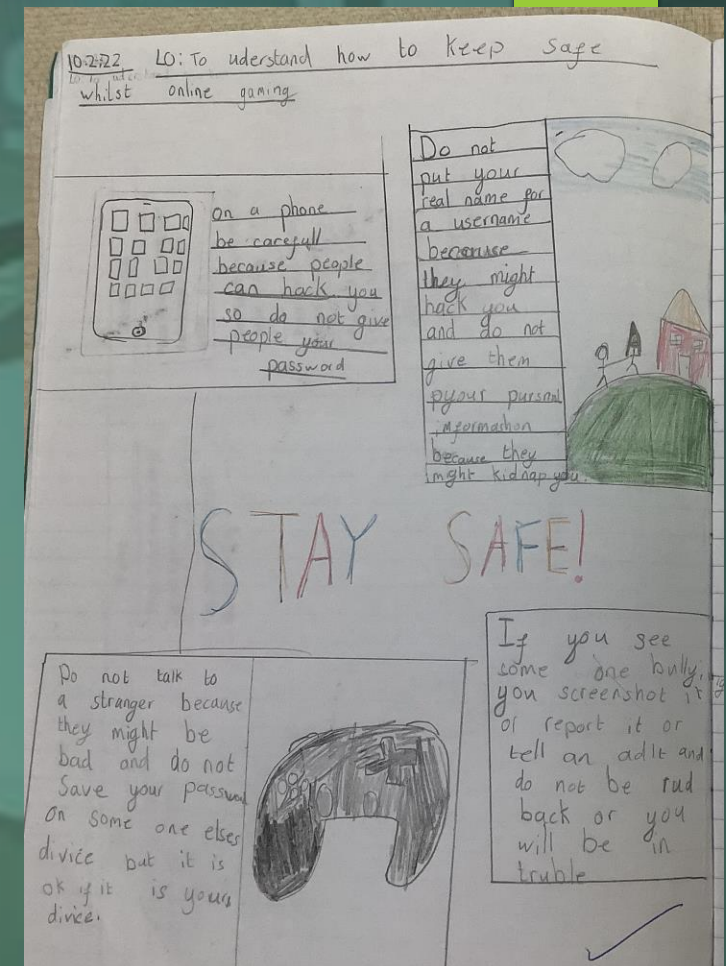 10.2.22 LO: To uderstand how to keep safe
whilst online gaming
on a phone
be carefull
because people
can hack you
so do not give
people your
password
Do not
put your
real name for
a username
because
they might
hack you
and do not
give them
pyour pursnal
informashon
because they
imght kidnap you
STAY SAFE!
Do not talk to
a stranger because
they might be
bad and do not
Save your
on some one elses
divice but it is
ok if it is yours
divice.
If you see
some one bully,
you screenshot it
or report it or
tell an adlt and
do not be rud
back or you
will be in
truble